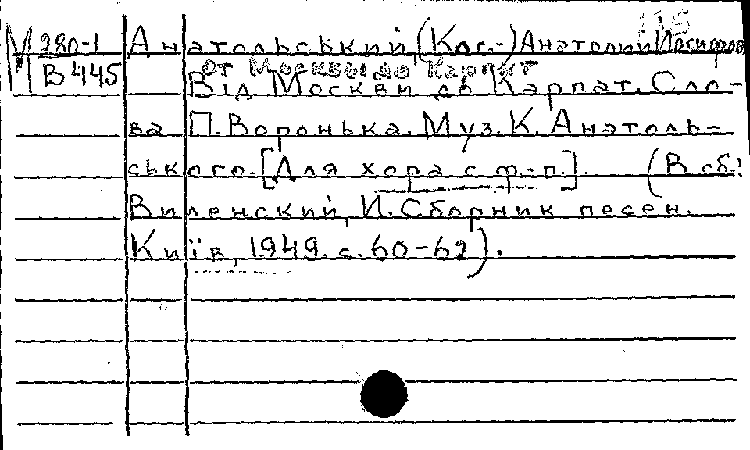 М 280-1 Анатольський, (Кос-) Анатолий Иосифов
В 445
от Москвы до Карпат
Від Москви до Карпат. Сло-
ва П. Воронька. Муз. К. Анатоль-
ського. [Для хора с ф-п.] (В сб.:
Виленский, И. Сборник песен.
Київ, 1949. с. 60-62).